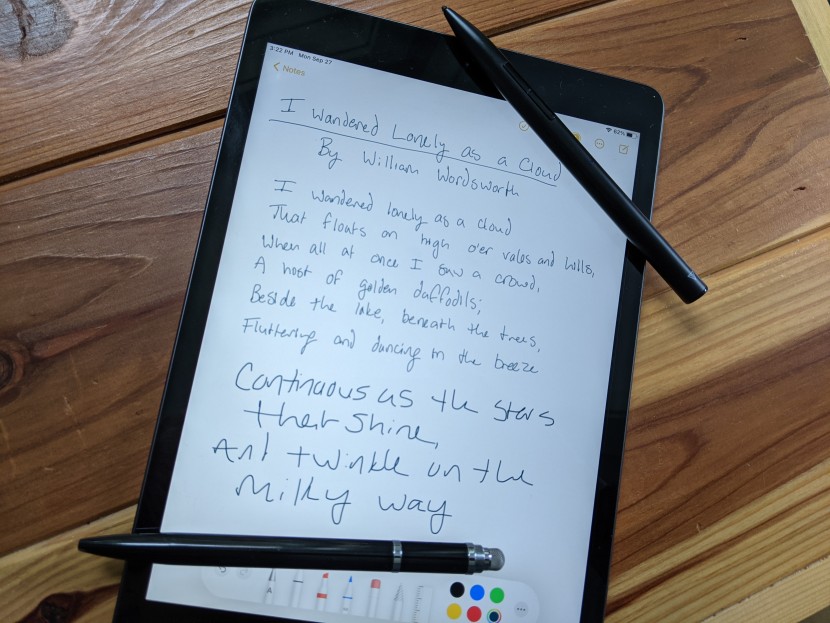 3:22 PM Mon Sep 27
62%
Notes
I Wandered Lonely as a Cloud
By William Wordsworth
I wandered lonely as a cloud
That floats on high o'er vales and hills,
When all at once I saw a crowd,
A host of golden daffodils;
Beside the lake, beneath the trees,
Fluttering and dancing in the breeze
Continuous as the stars
that shine,
And twinkle on the
milky way